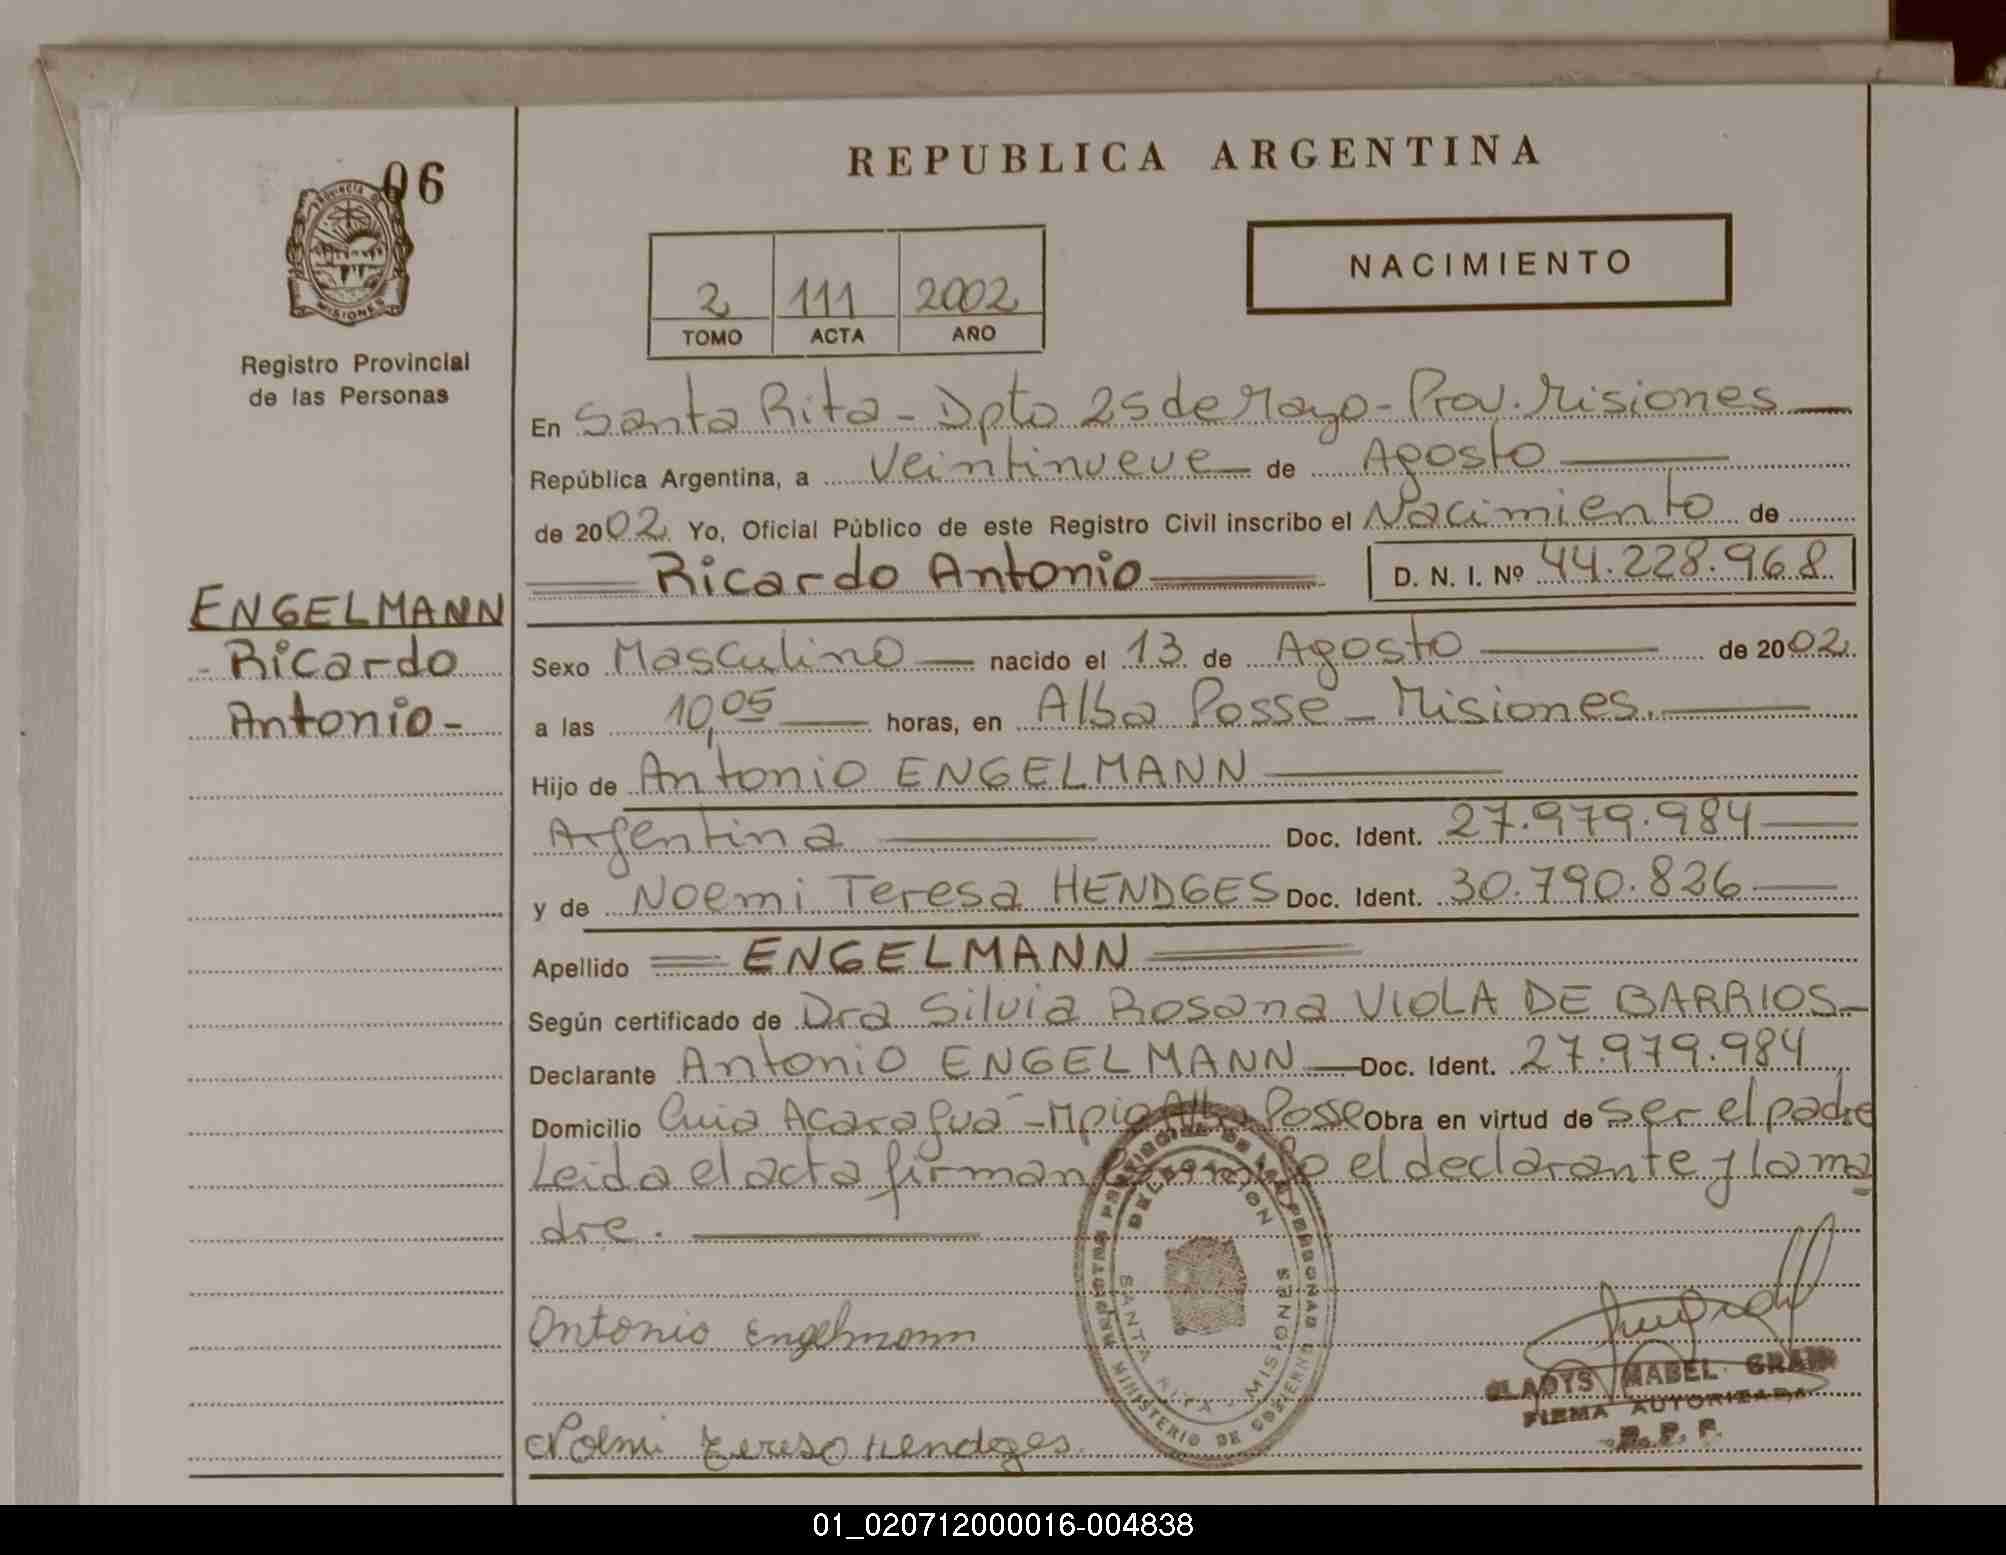 06
PROVINCIA DE
MISIONES
Registro Provincial
de las Personas
ENGELMANN
- Ricardo
Antonio -
REPUBLICA ARGENTINA
2 111 2002
TOMO ACTA AÑO
NACIMIENTO
En Santa Rita - Dpto 25 de Mayo - Prov. Misiones
República Argentina, a Veintinueve de Agosto
de 2002 Yo, Oficial Público de este Registro Civil inscribo el Nacimiento de
Ricardo Antonio D. N. I. Nº 44.228.968
Sexo Masculino nacido el 13 de Agosto de 2002
a las 10,05 horas, en Alba Posse - Misiones.
Hijo de Antonio ENGELMANN
Argentina Doc. Ident. 27.979.984
y de Noemi Teresa HENDGES Doc. Ident. 30.790.826
Apellido ENGELMANN
Según certificado de Dra Silvia Rosana VIOLA DE BARRIOS -
Declarante Antonio ENGELMANN Doc. Ident. 27.979.984
Domicilio Acaraguá - Mpio Alba Posse Obra en virtud de Ser el padre
Leida el acta firman el declarante y la ma
dre.
Antonio Engelmann
Noemi Teresa Hendges
REGISTRO PROVINCIAL DE LAS PERSONAS
MINISTERIO DE GOBIERNO
DELEGACION
SANTA RITA - MISIONES
GLADYS MABEL
FIRMA AUTORIZADA
R. P. P.
01_020712000016-004838